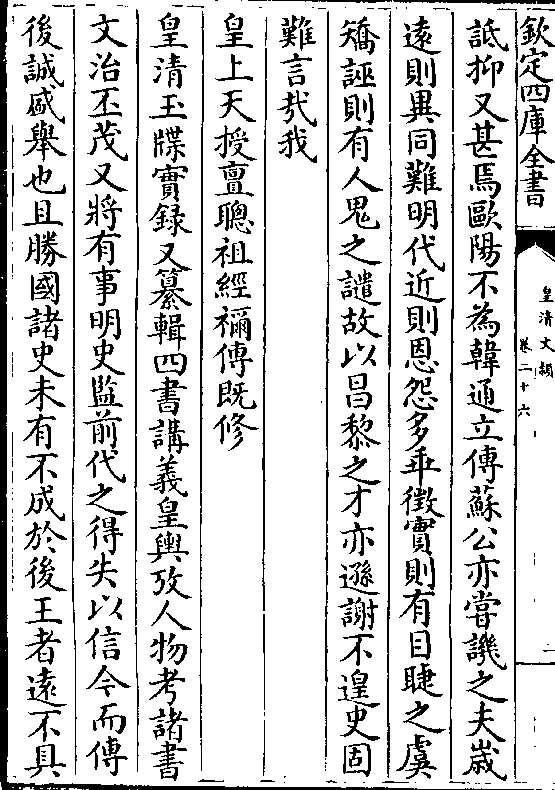 欽定四庫全書
皇清文穎
卷二十六
二
詆抑又甚焉歐陽不為韓通立傳蘇公亦嘗譏之夫歲
遠則異同難明代近則恩怨多乖徵實則有目睫之虞
矯誣則有人鬼之譴故以昌黎之才亦遜謝不遑史固
難言哉我
皇上天授亶聰祖經禰傳既修
皇清玉牒實録又纂輯四書講義皇輿攷人物考諸書
文治丕茂又將有事明史監前代之得失以信今而傳
後誠盛舉也且勝國諸史未有不成於後王者遠不具